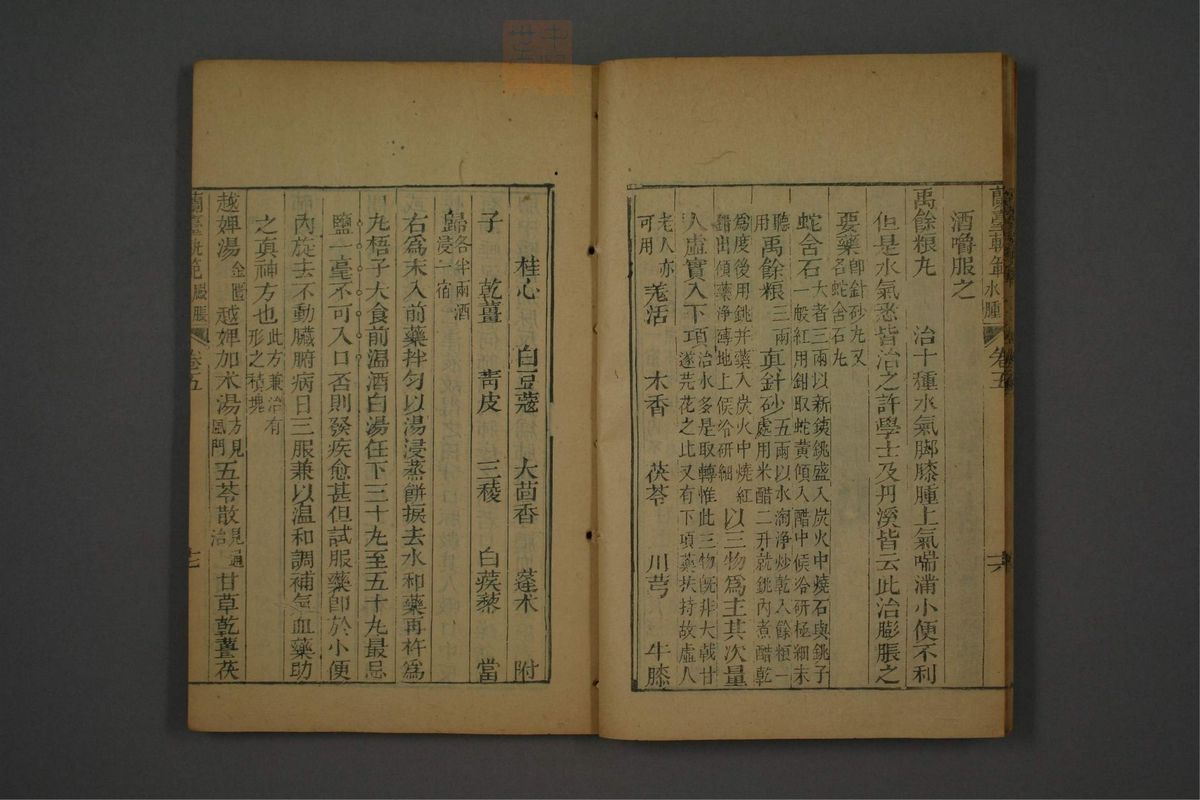 蘭臺軌範水腫 卷五 十六
酒嚼服之
禹餘粮丸 治十種水氣脚膝腫上氣喘滿小便不利
但是水氣悉皆治之許學士及丹溪皆云此治膨脹之
要藥卽針砂丸又
名蛇含石丸
蛇含石大者三兩以新銕銚盛入炭火中燒石與銚子
一般紅用鉗取蛇黃傾入醋中候冷研極細末
聽用禹餘粮三兩真針砂五兩以水淘淨炒乾入餘粳一
處用米醋二升就銚內煮醋乾
爲度後用銚并藥入炭火中燒紅
鉗出傾藥淨磚地上候冷研細以三物爲主其次量
人虛實入下項治水多是取轉惟此三物旣非大戟甘
遂芫花之比又有下項藥扶持故虛人
老人亦
可用羌活 木香 茯苓 川芎 牛膝
桂心 白豆蔻 大茴香 蓬术 附
子 乾薑 青皮 三稜 白蒺藜 當
歸各半兩酒
浸一宿
右爲末入前藥拌勻以湯浸蒸餅捩去水和藥再杵爲
丸梧子大食前温酒白湯任下三十丸至五十丸最忌
鹽一毫不可入口否則發疾愈甚但試服藥卽於小便
內旋去不動臟腑病日三服兼以温和調補氣血藥助
之真神方也此方兼治有
形之積塊
越婢湯金匱 越婢加术湯方見
風門五苓散見通
治甘草乾薑茯
蘭臺軌範脹 卷五 十七